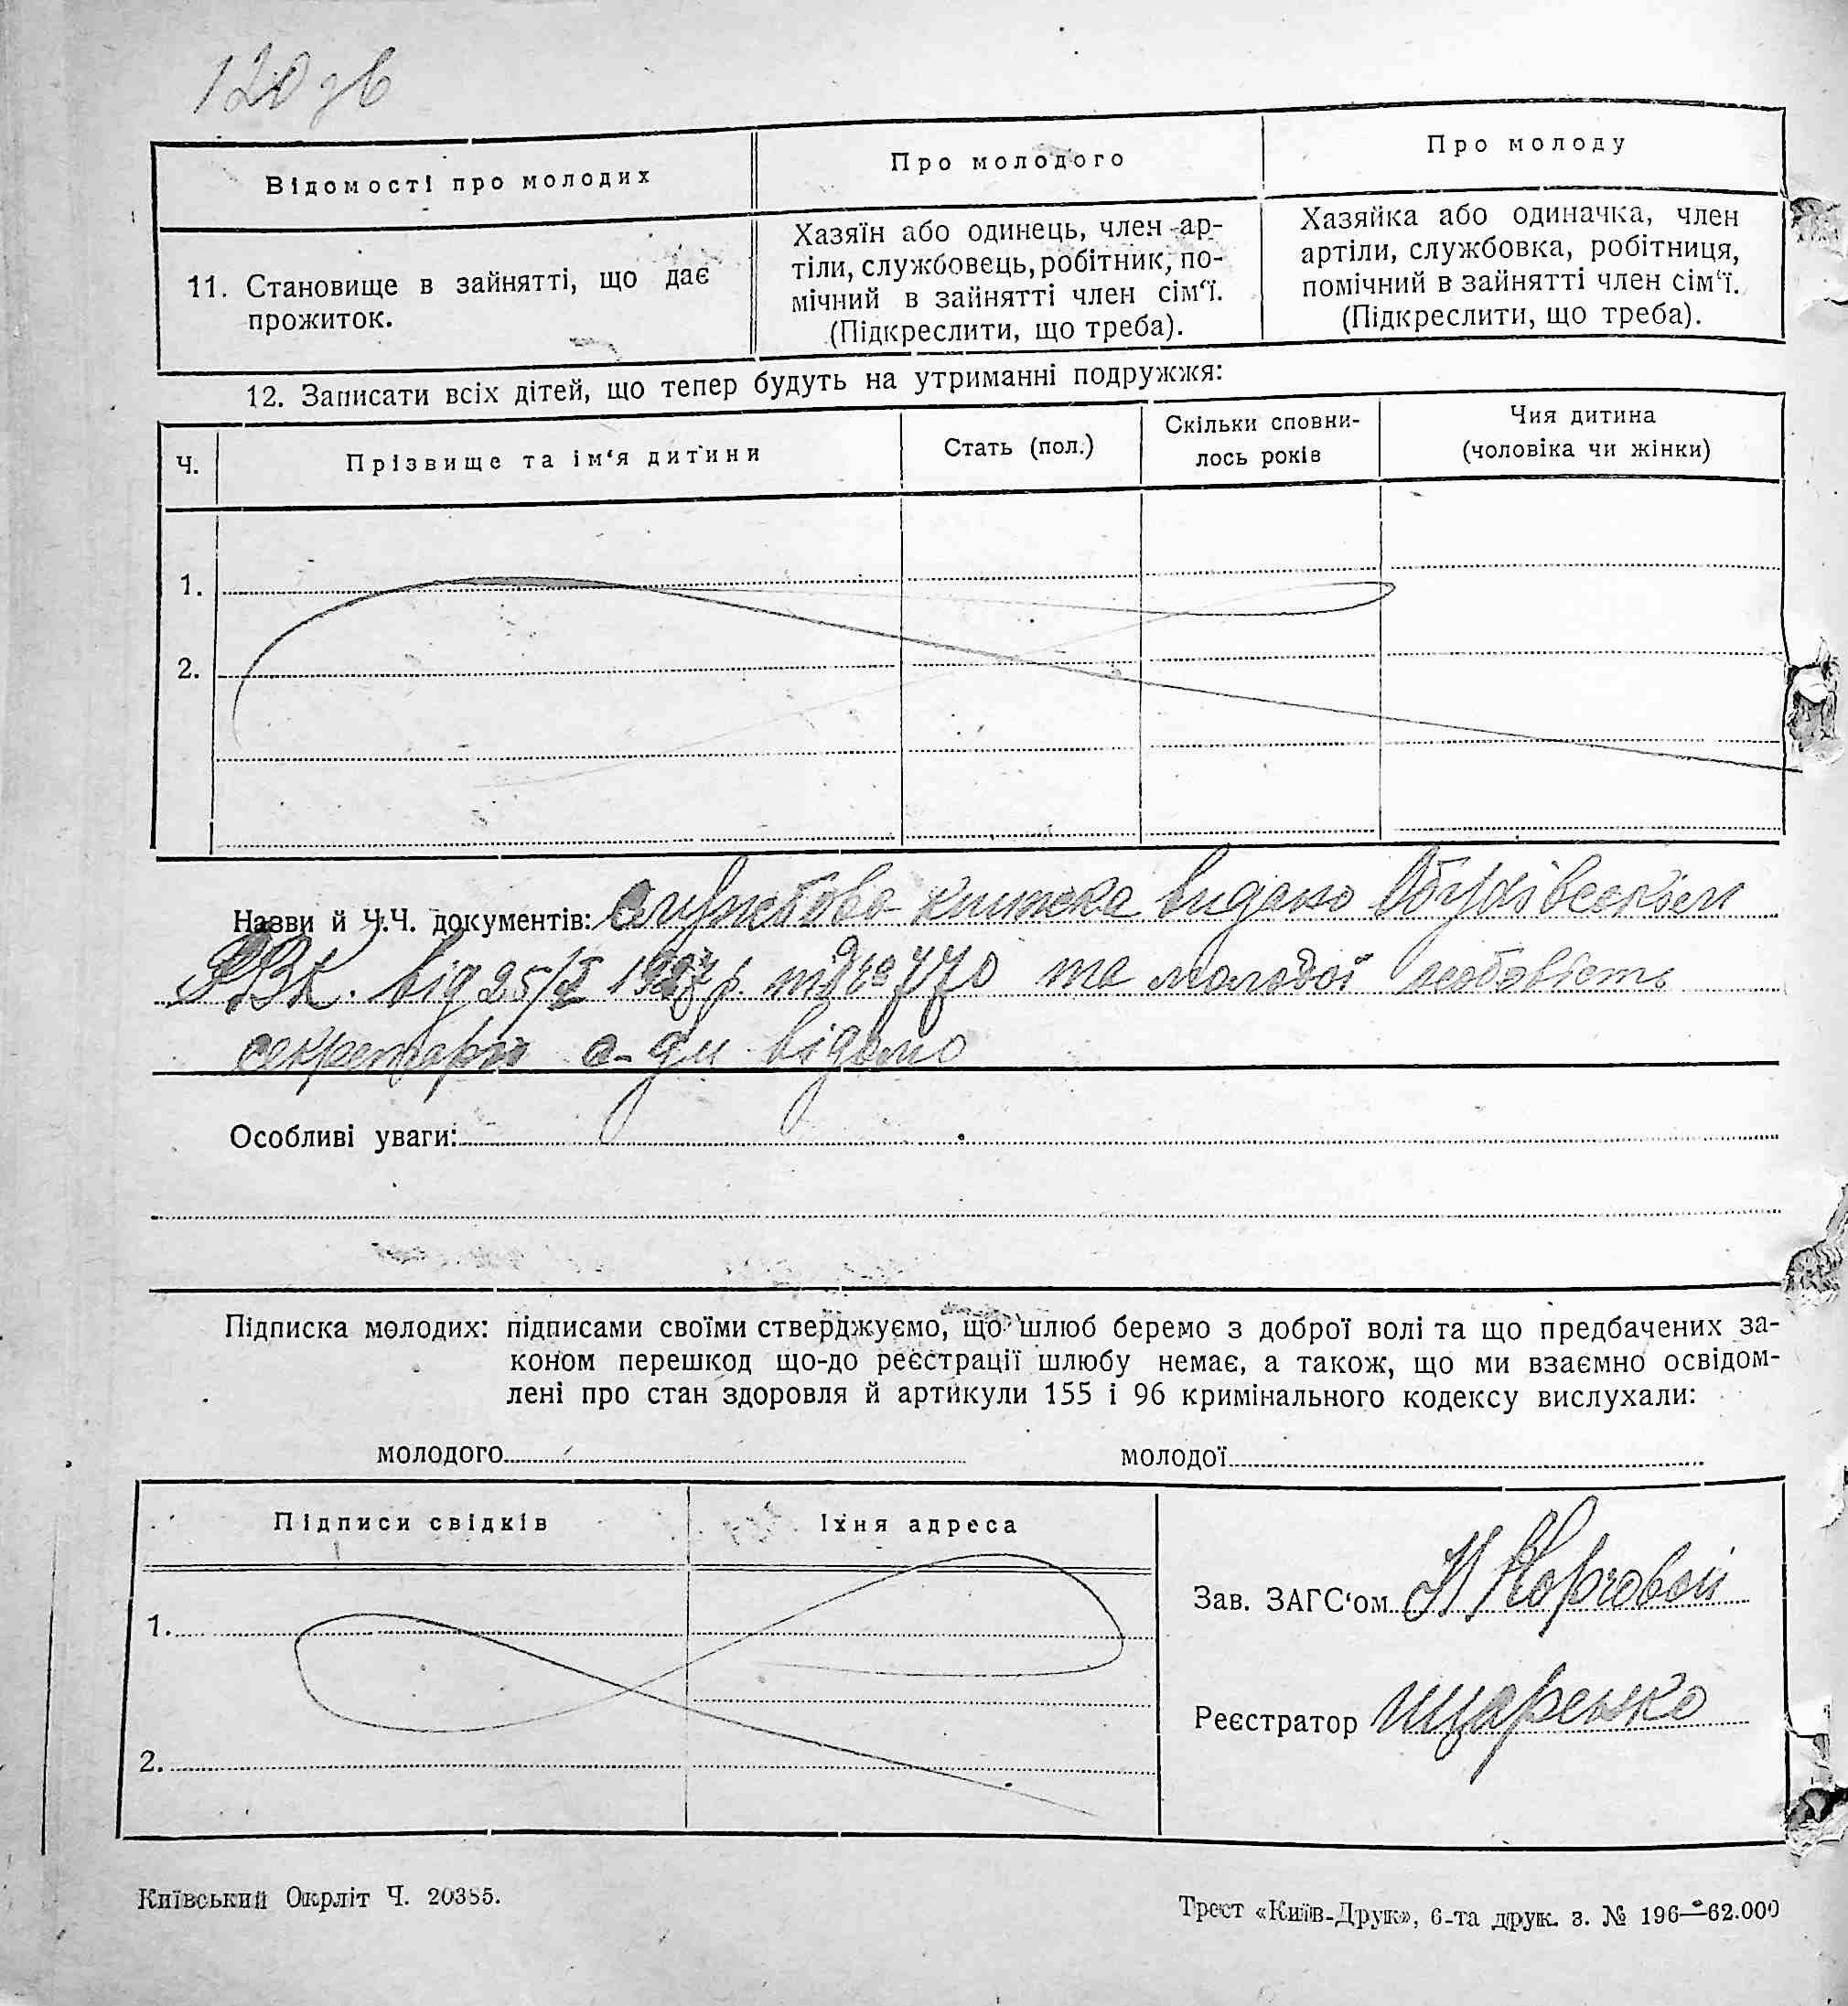 120 зв
Відомості про молодих
Про молодого
Про молоду
11. Становище в зайнятті, що дає
прожиток.
Хазяїн або одинець, член ар-
тіли, службовець, робітник, по-
мічний в зайнятті член сім‘ї.
(Підкреслити, що треба).
Хазяйка або одиначка, член
артіли, службовка, робітниця,
помічний в зайнятті член сім‘ї.
(Підкреслити, що треба).
12. Записати всіх дітей, що тепер будуть на утриманні подружжя:
Ч.
Прізвище та ім‘я дитини
Стать (пол.)
Скільки сповни-
лось років
Чия дитина
(чоловіка чи жінки)
1.
2.
Назви й Ч.Ч. документів: службова книжка видано
РВК. від 25/X 1927 р. під № 770 та молодої особовість
секретарю с-ди відомо
Особливі уваги:
Підписка молодих: підписами своїми стверджуємо, що шлюб беремо з доброї волі та що предбачених за-
коном перешкод що-до реєстрації шлюбу немає, а також, що ми взаємно освідом-
лені про стан здоровля й артикули 155 і 96 кримінального кодексу вислухали:
молодого
молодої
Підписи свідків
Їхня адреса
1.
2.
Зав. ЗАГС‘ом
Реєстратор
Київський Окрліт Ч. 20385.
Трест «Київ-Друк», 6-та друк. з. № 196—62.000